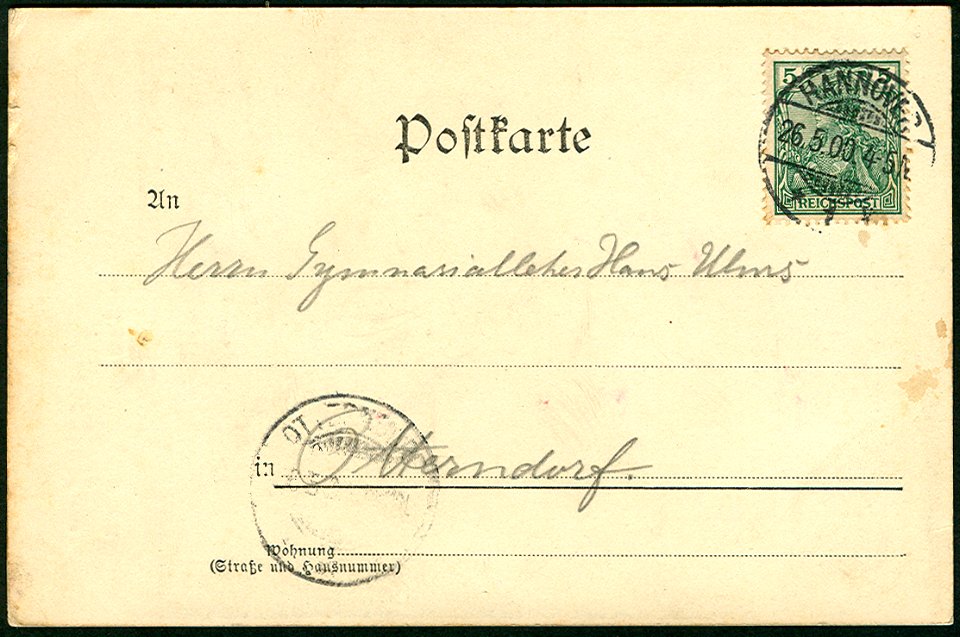 5 5
HANNOVER
26.5.00 4-5N.
* 1 *
REICHSPOST
Postkarte
An
Herrn Gymnasiallehrer Hans Ulms
OT
in Otterndorf.
Wohnung
(Straße und Hausnummer)